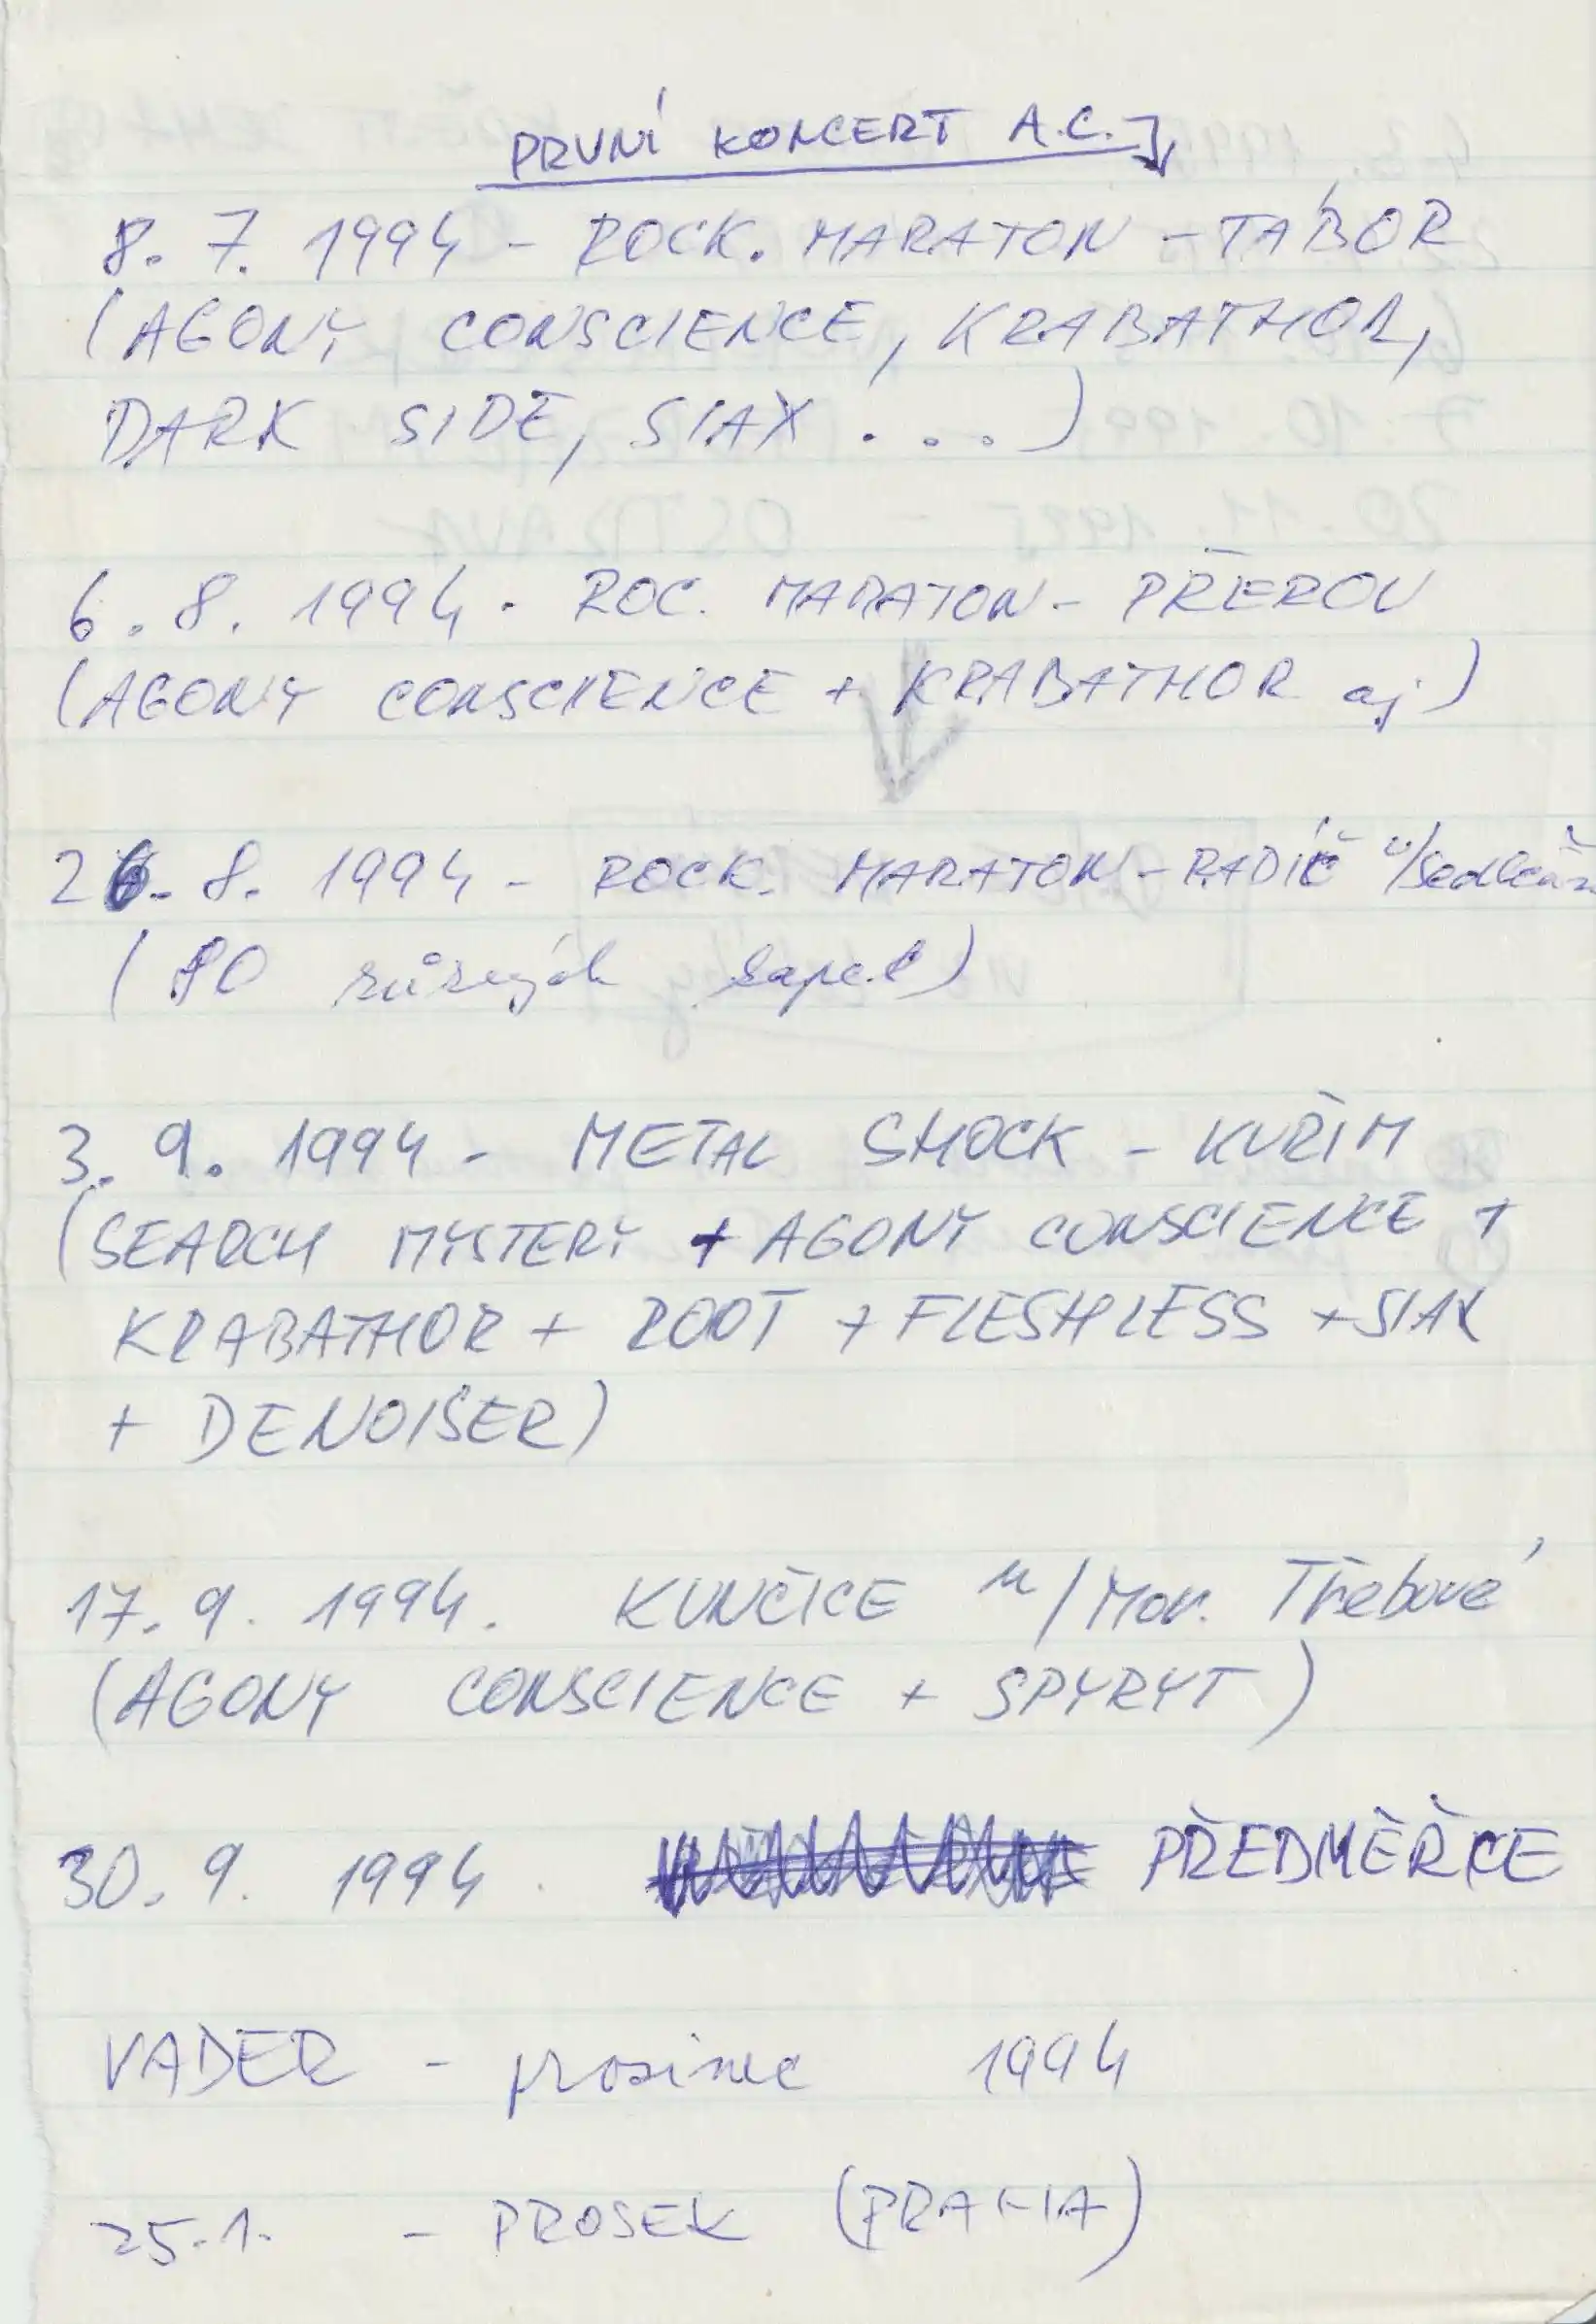 PRVNÍ KONCERT A.C.
8. 7. 1994 - ROCK. MARATON - TÁBOR
(AGONY CONSCIENCE, KRABATHOR,
DARK SIDE, SIAX . . .)
6. 8. 1994. ROC. MARATON - PŘEROV
(AGONY CONSCIENCE + KRABATHOR aj)
26. 8. 1994 - ROCK. MARATON - RADÍČ u/Sedlčan
(80 různých kapel)
3. 9. 1994 - METAL SHOCK - KUŘIM
(SEARCH MYSTERY + AGONY CONSCIENCE +
KRABATHOR + ROOT + FLESHLESS + SIAX
+ DENOISER)
17. 9. 1994. KUNČICE u/Mor. Třebové
(AGONY CONSCIENCE + SPYRYT)
30. 9. 1994. PŘEDMĚŘICE
VADER - prosinec 1994
25. 1. - PROSEK (PRAHA)